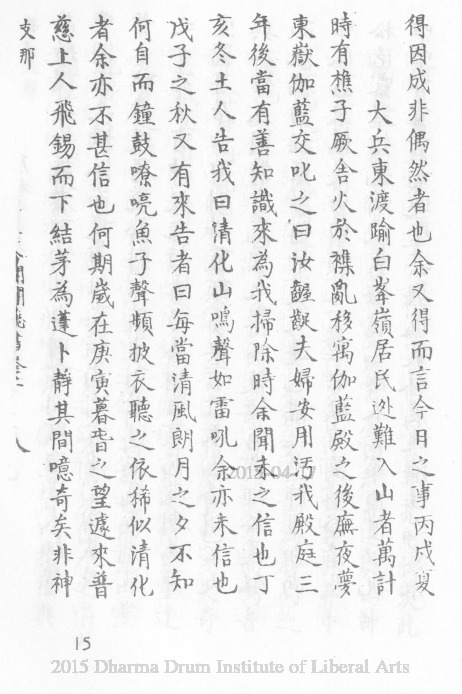 得因成非偶然者也余又得而言今日之事丙戌夏
大兵東渡踰白峯嶺居民迯難入山者萬計
時有樵子厥舍火於襍亂移寓伽藍殿之後廡夜夢
東嶽伽藍交叱之曰汝齷齪夫婦安用汚我殿庭三
年後當有善知識來為我掃除時余聞未之信也丁
亥冬土人告我曰清化山鳴聲如雷吼余亦未信也
戊子之秋又有來告者曰每當清風朗月之夕不知
何自而鐘鼓嘹喨魚子聲頻披衣聽之依稀似清化
者余亦不甚信也何期歲在庚寅暮春之望遽來普
慈上人飛錫而下結茅為蓬卜靜其間噫奇矣非神
支那
15
2012-04-17
2015 Dharma Drum Institute of Liberal Arts